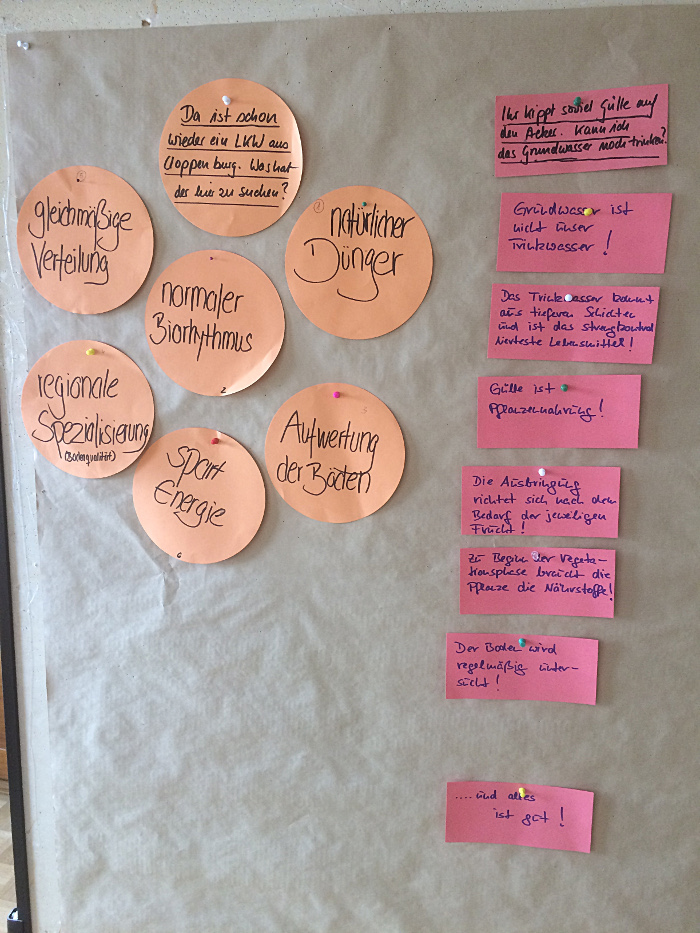 Da ist schon
wieder ein LKW aus
Cloppenburg. Was hat
der hier zu suchen?
1
gleichmäßige
Verteilung
2
natürlicher
Dünger
normaler
Biorhythmus
2
regionale
Spezialisierung
(Bodenqualität)
5
Aufwertung
der Böden
spart
Energie
6
Ihr kippt soviel Gülle auf
den Acker. Kann ich
das Grundwasser noch trinken?
Grundwasser ist
nicht unser
Trinkwasser!
Das Trinkwasser kommt
aus tieferen Schichten
und ist das strengkontrol
lierteste Lebensmittel!
Gülle ist
Pflanzennahrung!
Die Ausbringung
richtet sich nach dem
Bedarf der jeweiligen
Frucht!
Zu Beginn der Vegeta-
tionsphase braucht die
Pflanze die Nährstoffe!
Der Boden wird
regelmäßig unter-
sucht!
....und alles
ist gut!